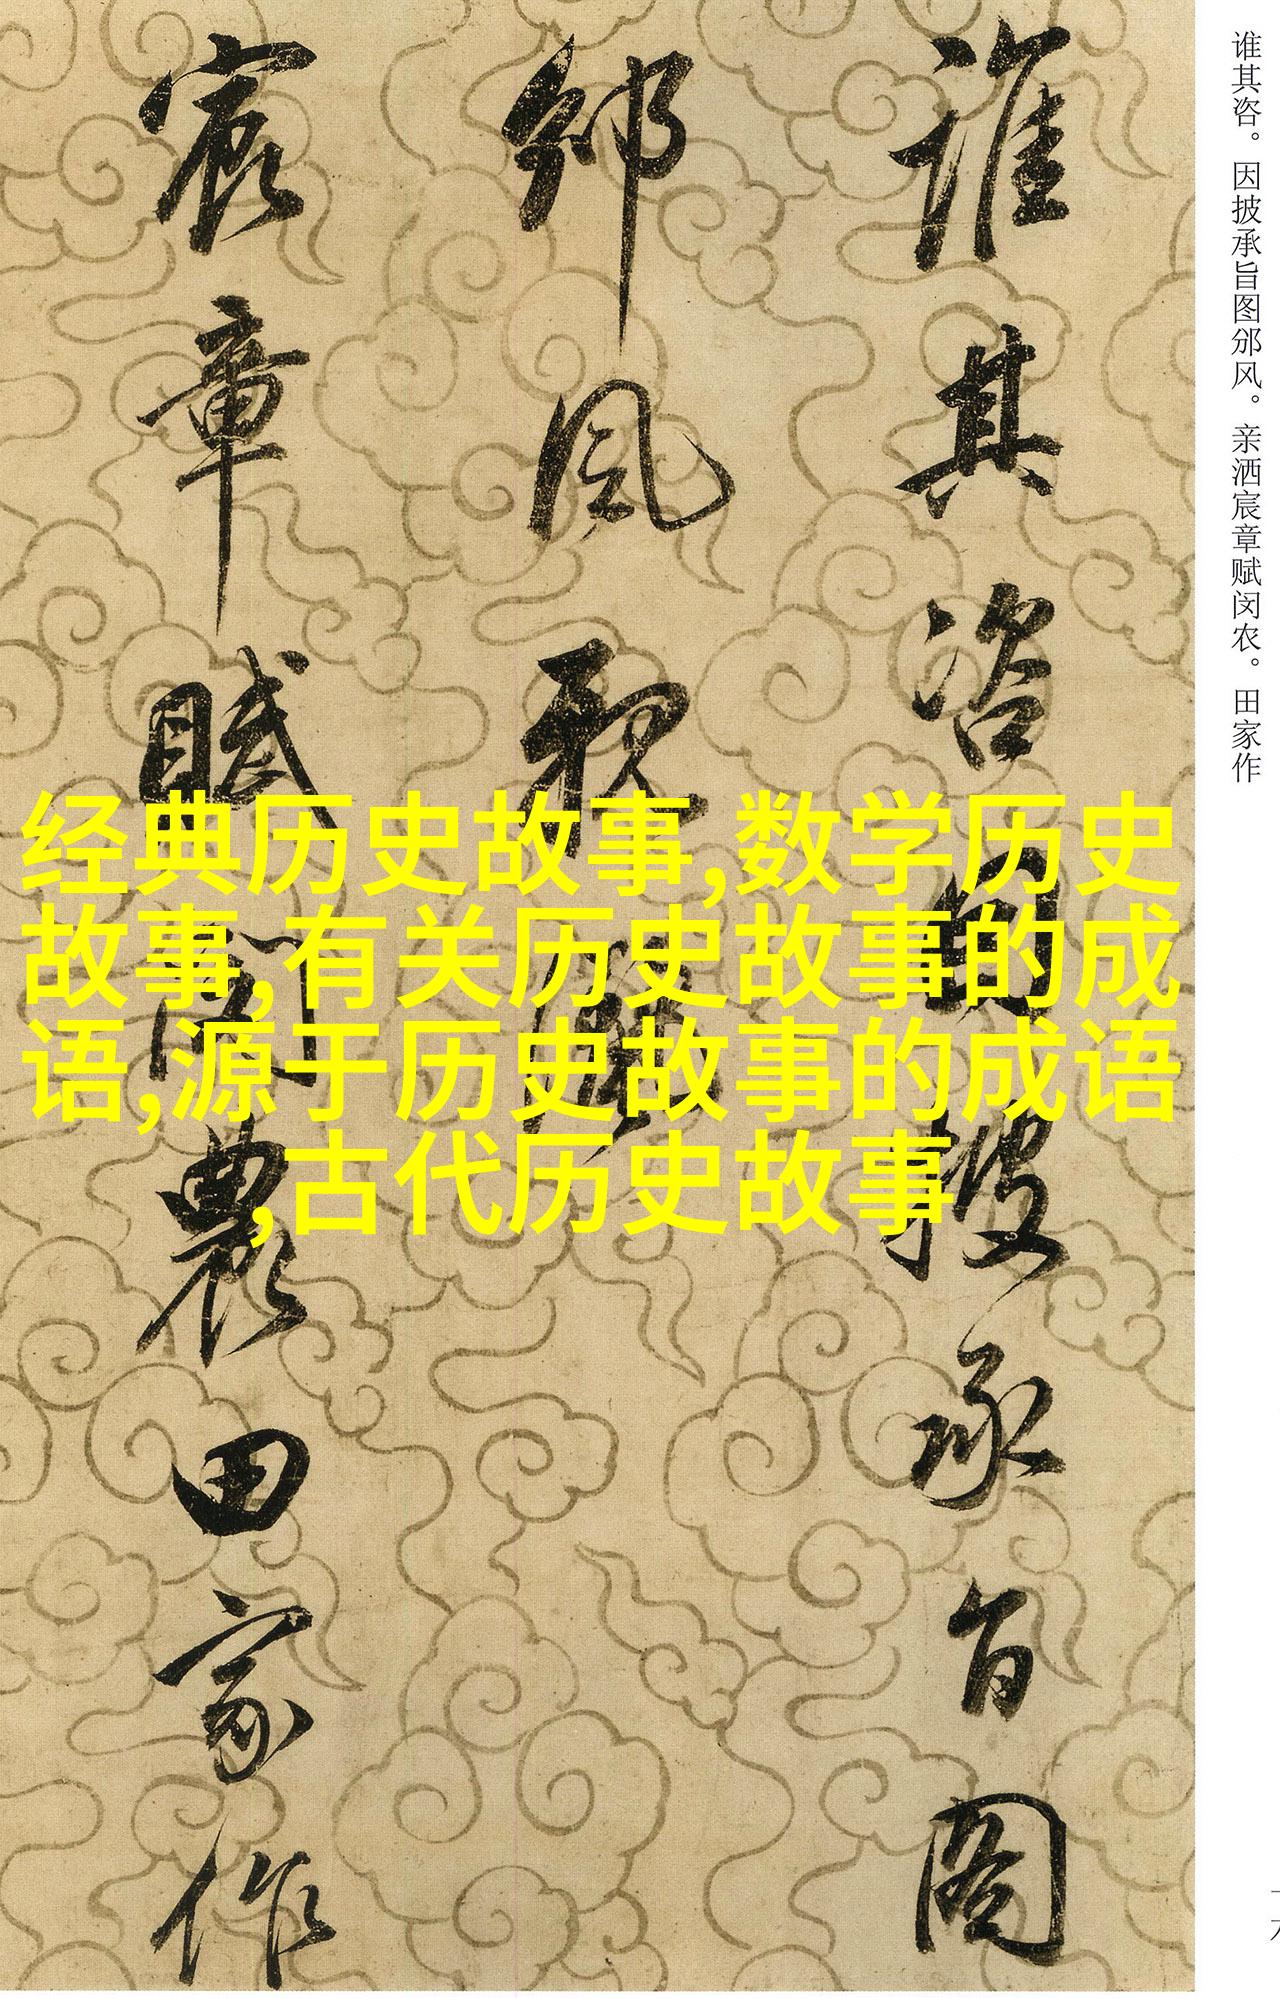 谁其咨。因披承旨图邠风。亲洒宸章赋闵农。田家作
誰其咨因披承旨圖
邠風親灑
宸章賦閔農田家作
经典历史故事,数学历史
故事,有关历史故事的成
语,源于历史故事的成语
,古代历史故事